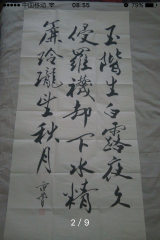 中国移动 08:55
玉階生白露夜久
侵羅襪却下水精
簾玲瓏望秋月
2 / 9